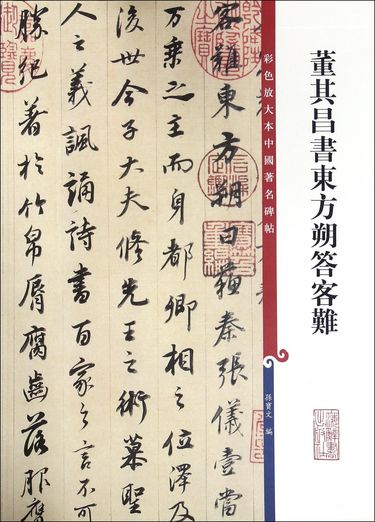 董其昌書東方朔答客難
彩色放大本中國著名碑帖
孫寶文 編
客難東方朔曰蘇秦張儀壹當
万乘之主而身都卿相之位澤及
後世今子大夫修先王之術慕聖
人之義諷誦詩書百家之言不可
勝紀著於竹帛脣腐齒落服膺